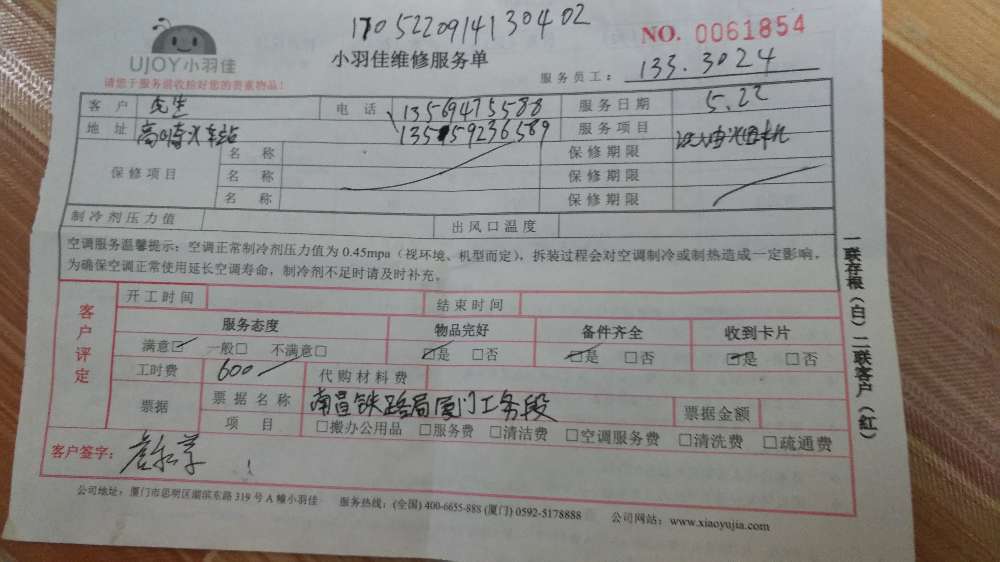 1705220914130402
NO. 0061854
UJOY小羽佳
小羽佳维修服务单
请您于服务前收拾好您的贵重物品!
服务员工: 133.3024
客户 先生 电话 13569475588 服务日期 5.22
地址 高崎火车站 服务项目 洗油烟机
保修项目 名称 保修期限
名称 保修期限
名称 保修期限
制冷剂压力值 出风口温度
空调服务温馨提示:空调正常制冷剂压力值为 0.45mpa(视环境、机型而定),拆装过程会对空调制冷或制热造成一定影响,
为确保空调正常使用延长空调寿命,制冷剂不足时请及时补充。
客户评定
开工时间 结束时间
服务态度 物品完好 备件齐全 收到卡片
满意☑ 一般□ 不满意□ ☑是 □否 ☑是 □否 ☑是 □否
工时费 600 代购材料费
票据 票据名称 南昌铁路局厦门工务段 票据金额
项目 □搬办公用品 □服务费 □清洁费 □空调服务费 □清洗费 □疏通费
客户签字:
公司地址:厦门市思明区湖滨东路 319 号 A 幢小羽佳 服务热线:(全国) 400-6655-888 (厦门) 0592-5178888 公司网站:www.xiaoyujia.com
一联存根(白)二联客户(红)